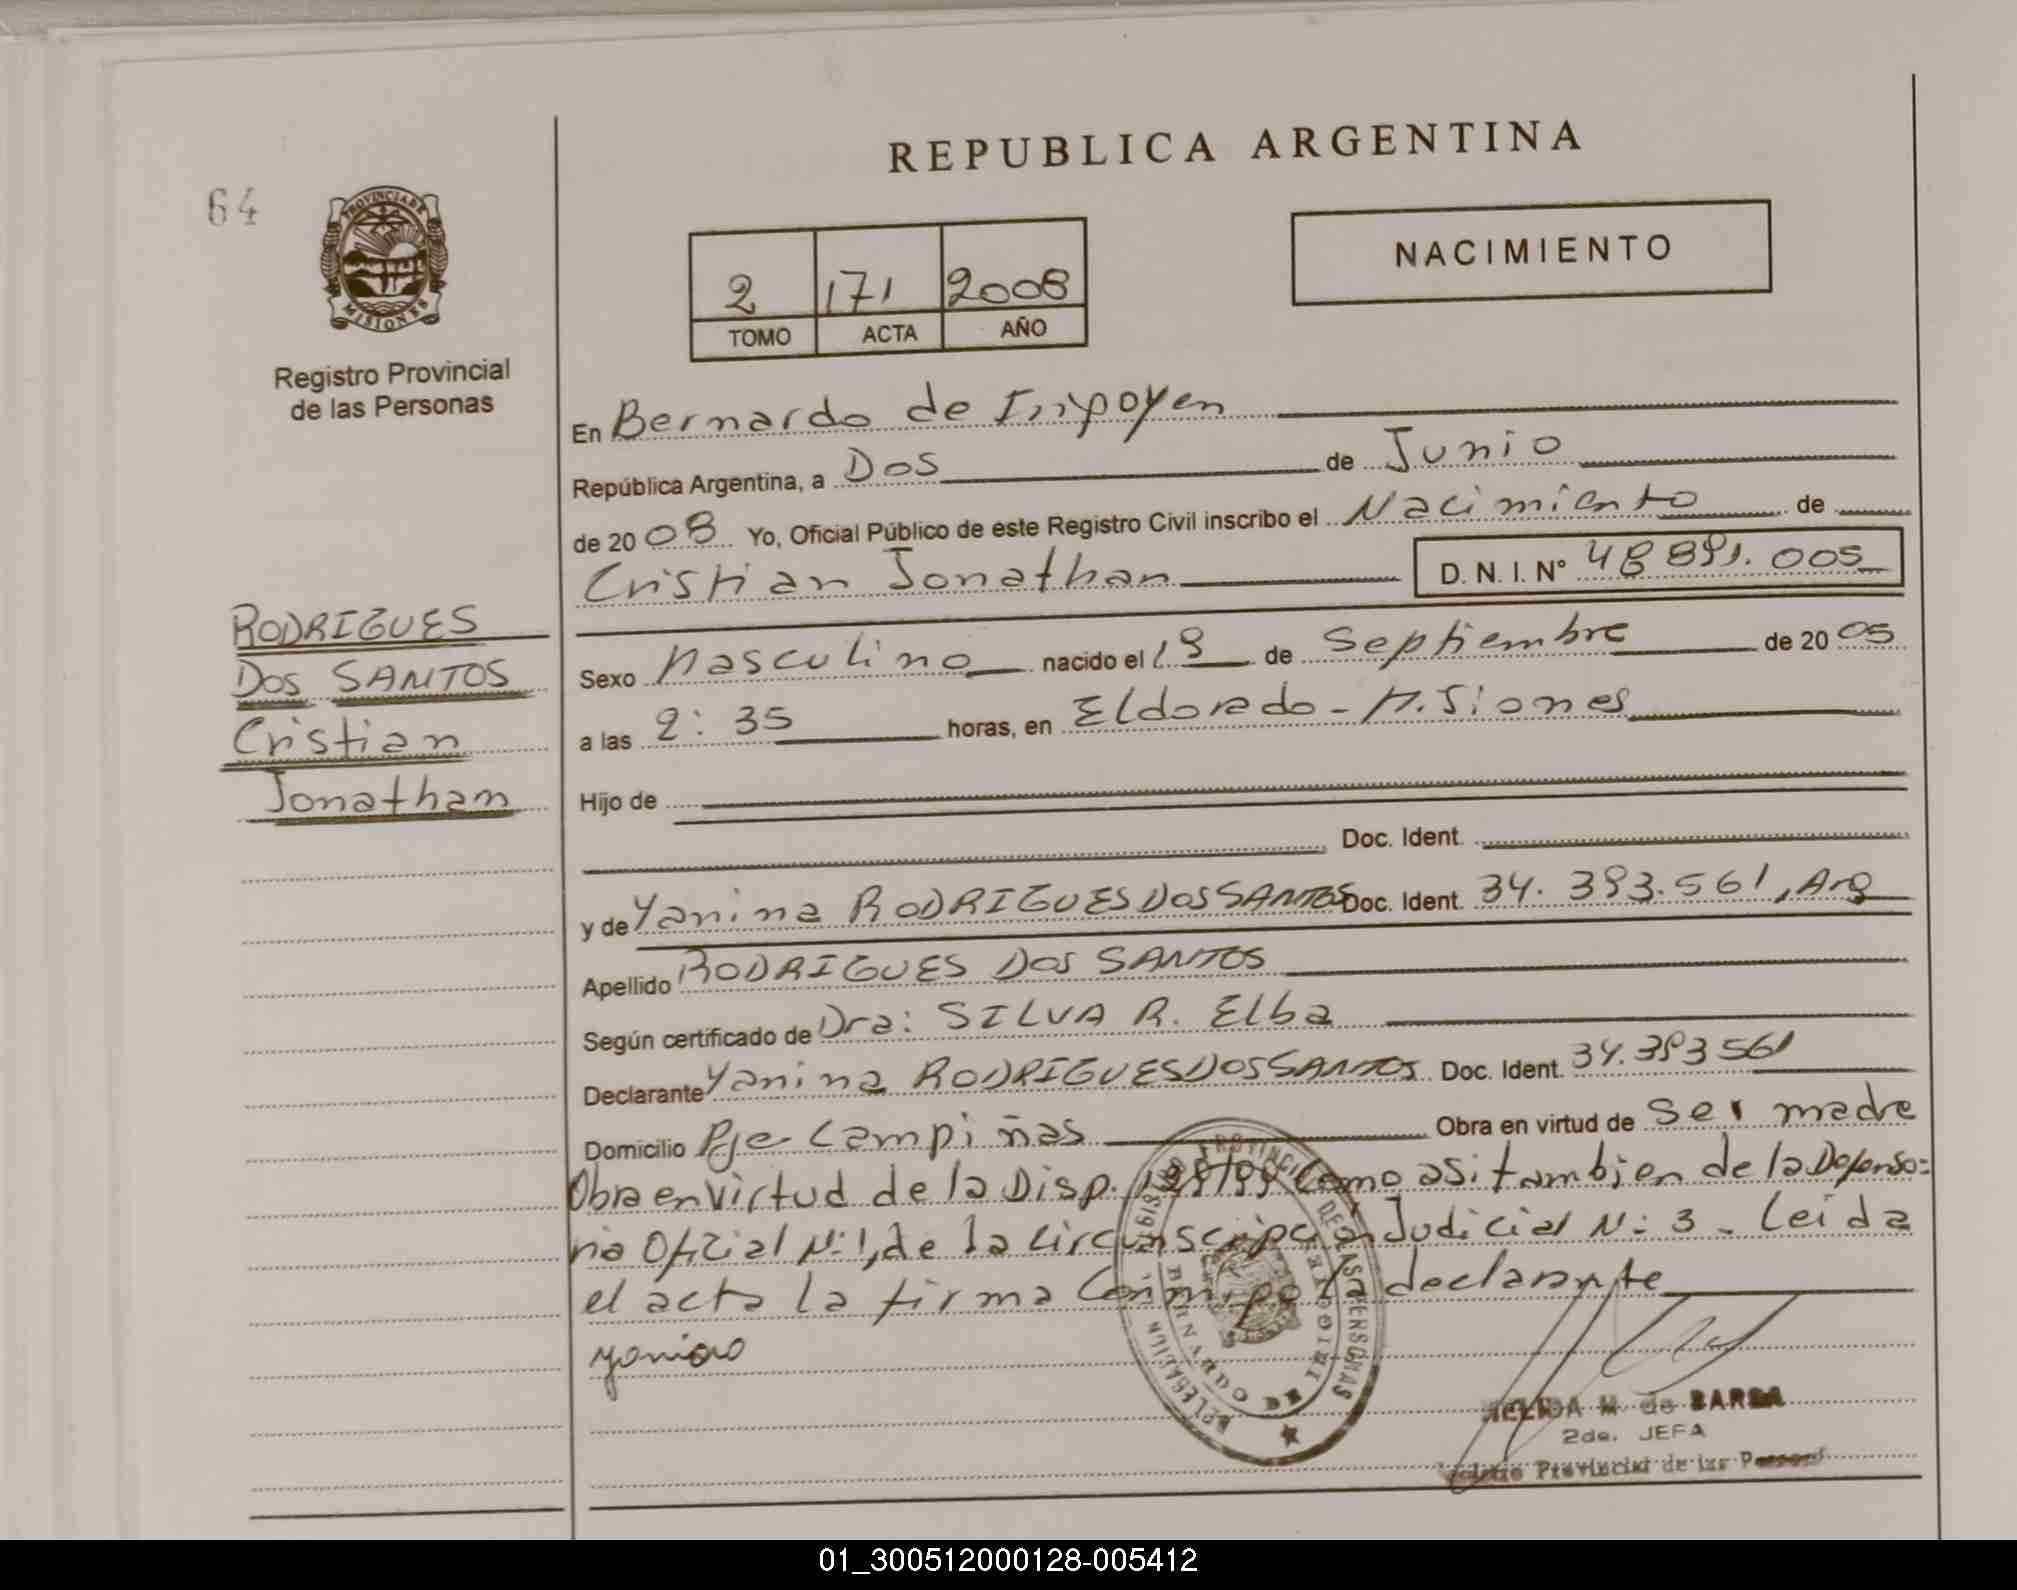 REPUBLICA ARGENTINA
64
PROVINCIA DE
MISIONES
Registro Provincial
de las Personas
NACIMIENTO
2 171 2008
TOMO ACTA AÑO
En Bernardo de Irigoyen
República Argentina, a Dos de Junio
de 2008 Yo, Oficial Público de este Registro Civil inscribo el Nacimiento de
Cristian Jonathan D. N. I. N°
RODRIGUES
DOS SANTOS
Cristian
Jonathan
Sexo Masculino nacido el de Septiembre de 2005
a las 2:35 horas, en Eldorado - Misiones
Hijo de
Doc. Ident.
y de Yanina RODRIGUES DOS SANTOS Doc. Ident. 34.393.561, Arg
Apellido RODRIGUES DOS SANTOS
Según certificado de Dra: SILVA R. Elba
Declarante Yanina RODRIGUES DOS SANTOS Doc. Ident. 34.393561
Domicilio Pje Campiñas Obra en virtud de Ser madre
Obra en Virtud de la Disp. Como asi tambien de la Defenso=
ria Oficial N:1, de la Circunscripcion Judicial N:3 - Leida
el acta la firma Conmigo la declarante
HELIDA M. de BARBA
2da. JEFA
Provincial de las
01_300512000128-005412